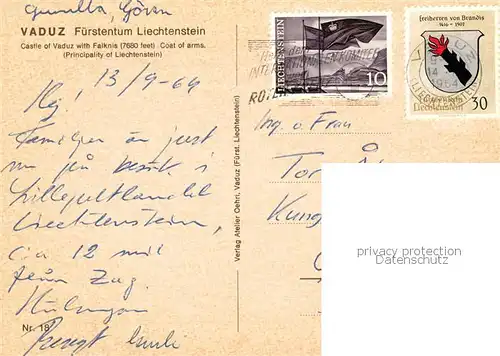 Gunilla, Göran
VADUZ Fürstentum Liechtenstein
Castle of Vaduz with Falknis (7680 feet). Coat of arms.
(Principality of Liechtenstein)
13/9-64
Hej!
Familjen är just
nu på besök i
lilleputtlandet
Liechtenstein,
ca 12 mil
från Zug.
Hälsningar
Bengt
Nr. 18
Verlag Atelier Oehri, Vaduz (Fürst. Liechtenstein)
LIECHTENSTEIN
10
Freiherren von Brandis
1416 - 1507
Fürstentum
Liechtenstein
30
INTERNATIONALEN KOMITEE
Ing. o. Fru
Tor
Kung
privacy protection
www.akpool.de